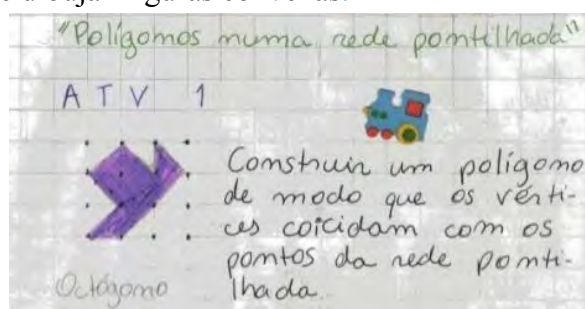 "Polígonos numa rede pontilhada"
ATV 1
Construir um polígono
de modo que os vérti-
ces coicidam com os
pontos da rede ponti-
lhada.
Octógono